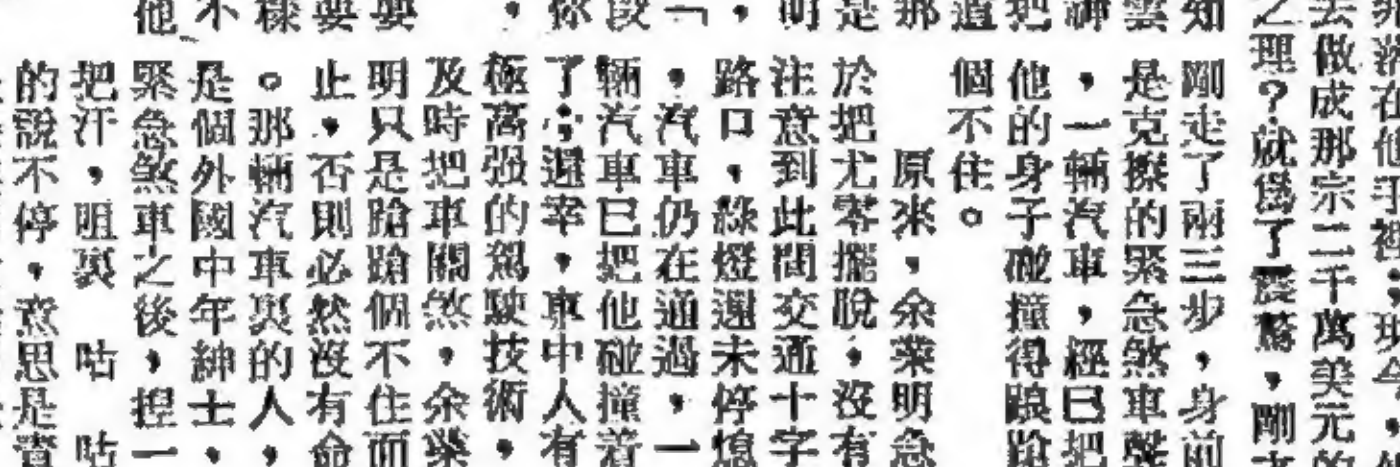 去做成那宗二千萬美元的
之理？就為了震驚，剛
剛走了兩三步，身前
是克擦的緊急煞車聲
，一輛汽車，經已把
他的身子碰撞得踉蹌
個不住。
原來，余業明急
於把尤零擺脫，沒有
注意到此間交通十字
路口，綠燈還未停熄
，汽車仍在通過，一
輛汽車已把他碰撞着
了；還幸，車中人有
極高强的駕駛技術，
及時把車關煞，余業
明只是蹌蹌個不住而
止，否則必然沒有命
。那輛汽車裏的人，
是個外國中年紳士，
緊急煞車之後，捏一
把汗，咀裏咕咕
的說不停，意思是責